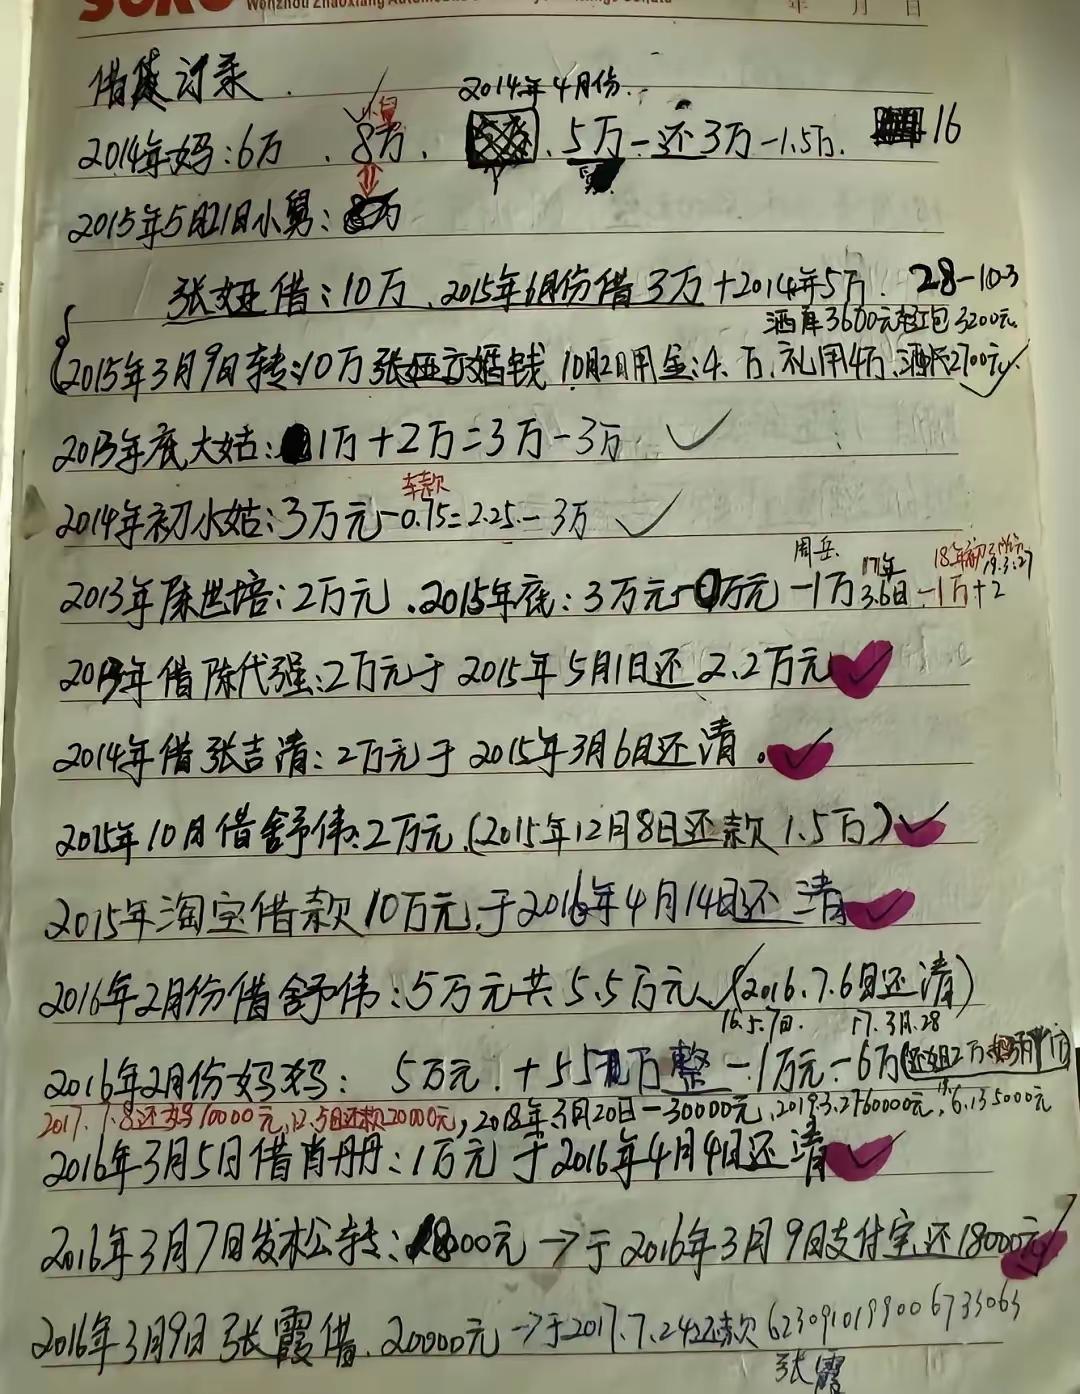 年 月 日
借贷记录.
2014年4月份.
小舅
2014年妈:6万 . 8万. . 5万-还3万-1.5万. 16
舅
2015年5月21日小舅:
张娅借:10万、2015年6月份借3万+2014年5万. 28-10-3
酒席3600元红包3200元.
2015年3月9日转:10万张娅 婚钱 10月2日用金:4.万.礼用4万.酒席2700元
2013年底大姑:1万+2万=3万-3万
车款
2014年初小姑:3万元-0.75=2.25.-3万
周岳. 17年 18年初 19.3.27
2013年陈世培:2万元.2015年底:3万元- 万元-1万 3.6日 -1万+2
2013年借陈代强:2万元于2015年5月1日还2.2万元
2014年借张吉清:2万元于2015年3月6日还清.
2015年10月借舒伟:2万元.(2015年12月8日还款1.5万)
2015年淘宝借款10万元,于2016年4月14日还清
2016年2月份借舒伟:5万元共5.5万元、(2016.7.6日还清)
16.5.7日. 17.3月.28
2016年2月份妈妈: 5万元.+5 万整-1万元-6万(还姐2万
2017.7.8还妈10000元,12.5日还款20000元,2018年3月20日-30000元,2019.3.27 60000元,6.13 5000元
2016年3月5日借肖丹丹:1万元于2016年4月4日还清
2016年3月7日发松转:18000元→于2016年3月9日支付宝还18000元
2016年3月9日张霞借.20000元→于2017.7.24还款6230910199006733063
张霞